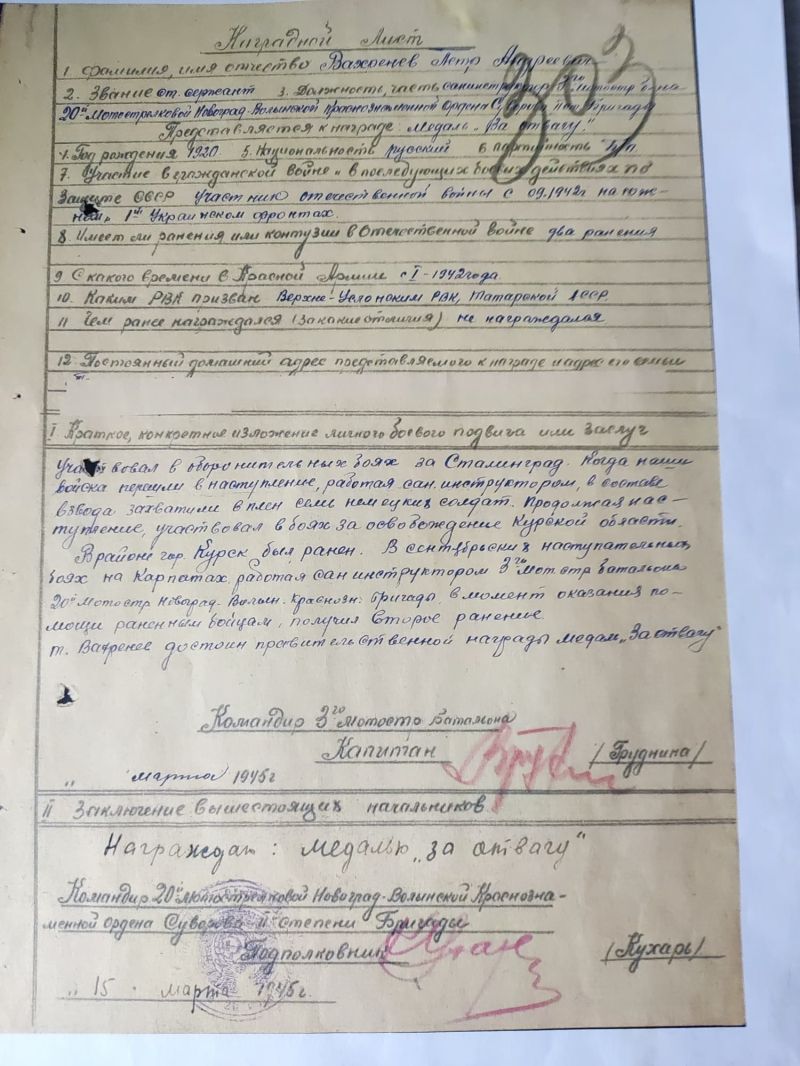 Наградной Лист
303
1. Фамилия, имя отчество Вахренев Петр Андреевич
2. Звание ст. сержант 3. Должность, часть санинструктор 3го мотостр б-на
20й Мотострелковой Новоград-Волынской Краснознаменной Ордена Бригады
Представляется к награде: Медаль „За отвагу".
4. Год рождения 1920 5. Национальность русский 6 партийность б/п
7. Участие в гражданской войне и в последующих боевых действиях по
Защите СССР участник отечественной войны с 09.1942г на юж-
1м Украинском фронтах.
8. Имеет ли ранения или контузии в Отечественной войне два ранения
9 С какого времени в Красной Армии с I-1942 года.
10. Каким РВК призван Верхне-Услонским РВК, Татарской АССР.
11 Чем ранее награждался (За какие отличия) не награждался
12. Постоянный домашний адрес представляемого к награде и адрес его семьи
I. Краткое, конкретное изложение личного боевого подвига или заслуг
Участвовал в оборонительных боях за Сталинград. Когда наши
войска перешли в наступление, работая сан.инструктором, в составе
взвода захватили в плен семь немецких солдат. Продолжая нас-
тупление, участвовал в боях за освобождение Курской области.
В районе гор. Курск был ранен. В сентябрьских наступательных
боях на Карпатах, работая санинструктором 3го Мот стр батальона
20й Мотостр Новоград-Волын. Краснозн. Бригады, в момент оказания по-
мощи раненным бойцам, получил второе ранение.
т. Вахренев достоин правительственной награды медаль „За отвагу"
Командир 3го Мотостр Батальона
Капитан /Груднина/
„ марта 1945г
II Заключение вышестоящих начальников
Награждан: медалью „за отвагу"
Командир 20й Мотострелковой Новоград-Волынской Краснозна-
менной Ордена Суворова II Степени Бригады
Подполковник /Кухарь/
„ 15 . марта 1945г.